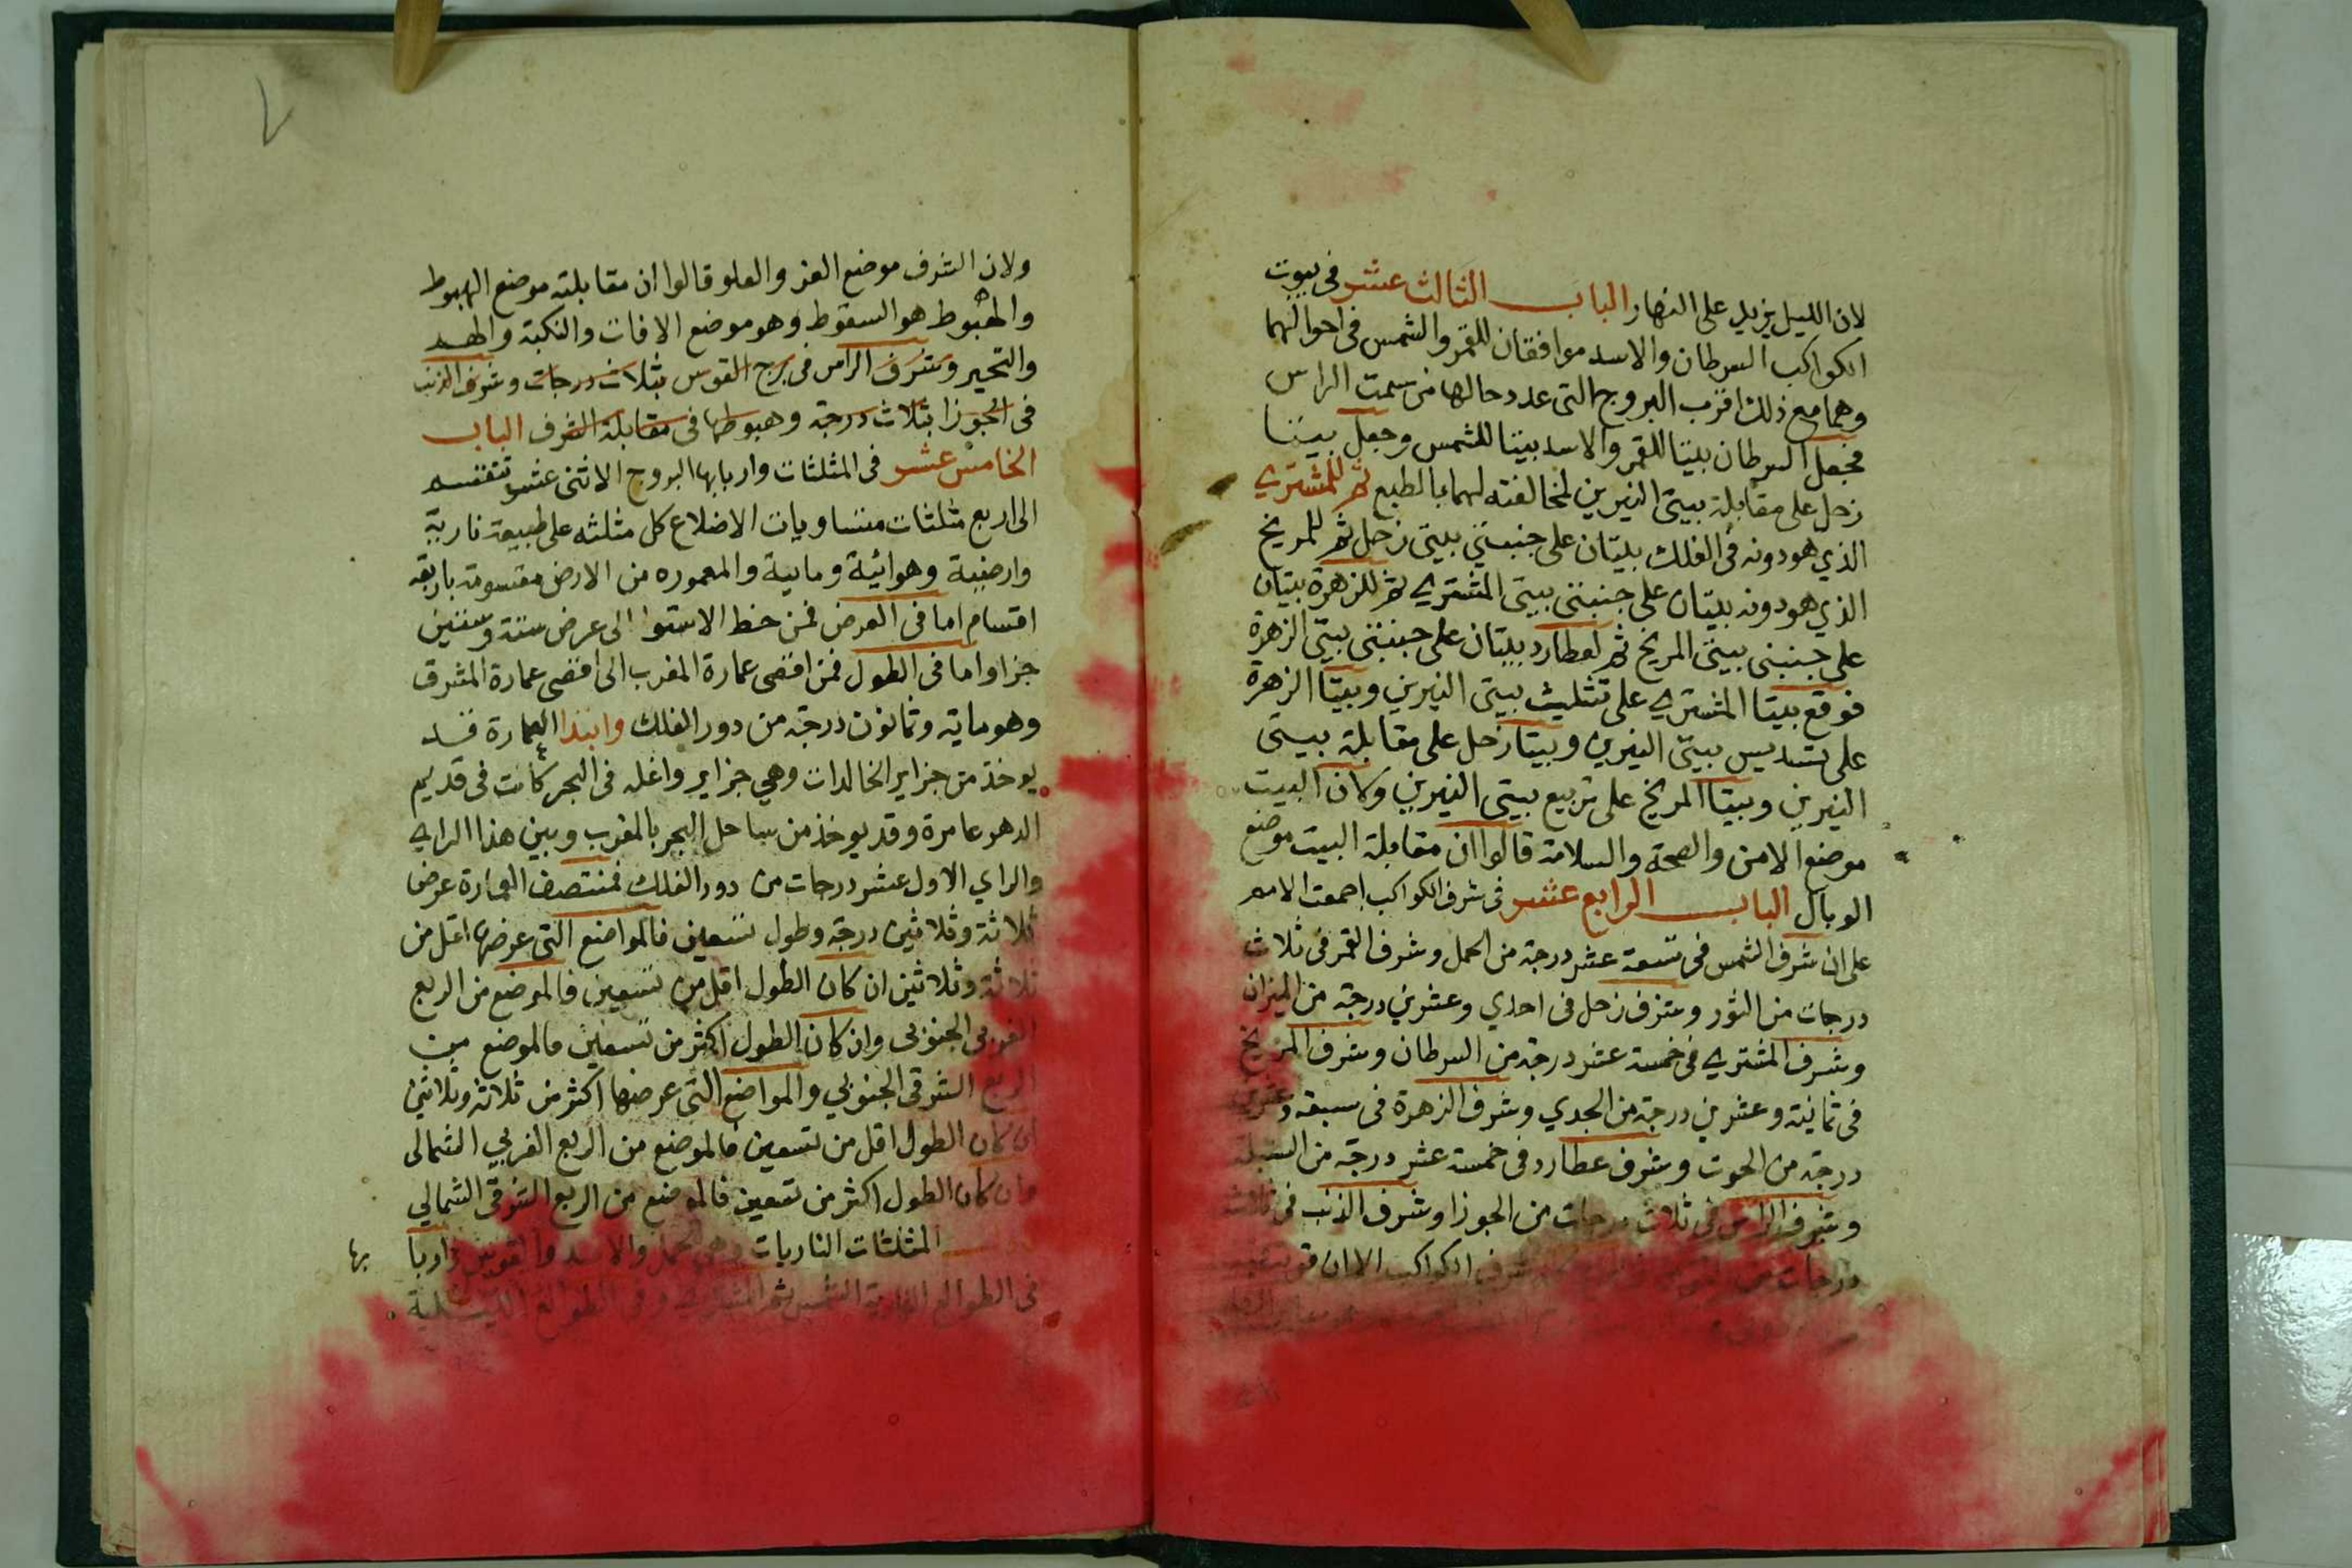 لان الليل يزيد على النهار الباب الثالث عشر فى بيوت
الكواكب السرطان والاسد موافقان للقمر والشمس فى احوالهما
وهما مع ذلك اقرب البروج التى عدد حالها من سمت الراس
فجعل السرطان بيتا للقمر والاسد بيتا للشمس وجعل بيتا
زحل على مقابلة بيتى النيرين لمخالفته لهما بالطبع ثم للمشتري
الذي هو دونه فى الفلك بيتان على جنبتى بيتى زحل ثم للمريخ
الذي هو دونه بيتان على جنبتى بيتى المشتري ثم للزهرة بيتان
على جنبتى بيتى المريخ ثم لعطارد بيتان على جنبتى بيتى الزهرة
فوقع بيتا المشتري على تثليث بيتى النيرين وبيتا الزهرة
على تسديس بيتى النيرين وبيتا زحل على مقابلة بيتى
النيرين وبيتا المريخ على تربيع بيتى النيرين وكان البيت
موضع الامن والصحة والسلامة قالوا ان مقابلة البيت موضع
الوبال الباب الرابع عشر فى شرف الكواكب اجمعت الامم
على ان شرف الشمس فى تسعة عشر درجة من الحمل وشرف القمر فى ثلاث
درجات من الثور وشرف زحل فى احدي وعشرين درجة من الميزان
وشرف المشتري فى خمسة عشر درجة من السرطان وشرف المريخ
فى ثمانية وعشرين درجة من الجدي وشرف الزهرة فى سبعة وعشرين
درجة من الحوت وشرف عطارد فى خمسة عشر درجة من السنبلة
وشرف الراس فى ثلاث درجات من الجوزا وشرف الذنب فى ثلاث
درجات من القوس شرف الكواكب الا ان
ولان الشرف موضع العز والعلو قالوا ان مقابلته موضع الهبوط
والهبوط هو السقوط وهو موضع الافات والنكبة والهد
والتحير وشرف الراس فى برج القوس بثلاث درجات وشرف الذنب
فى الجوزا بثلاث درجة وهبوطها فى مقابلة الشرف الباب
الخامس عشر فى المثلثات واربابها البروج الاثنى عشر تنقسم
الى اربع مثلثات متساويات الاضلاع كل مثلثه على طبيعة نارية
وارضية وهوائية ومايية والمعموره من الارض مقسومة باربعة
اقسام اما فى العرض فمن خط الاستوا الى عرض ستة وستين
جزا واما فى الطول فمن اقصى عمارة المغرب الى اقصى عمارة المشرق
وهو ماية وثمانون درجة من دور الفلك وابتدا العمارة قد
يوخذ من جزاير الخالدات وهي جزاير واغله فى البحر كانت فى قديم
الدهر عامرة وقد يوخذ من ساحل البحر بالمغرب وبين هذا الراي
والراي الاول عشر درجات من دور الفلك فمنتصف العمارة عرض
ثلاثة وثلاثين درجة وطول تسعين فالمواضع التى عرضها اقل من
ثلاثة وثلاثين ان كان الطول اقل من تسعين فالموضع من الربع
الغربى الجنوبى وان كان الطول اكثر من تسعين فالموضع من
الربع الشرقى الجنوبي والمواضع التى عرضها اكثر من ثلاثة وثلاثين
ان كان الطول اقل من تسعين فالموضع من الربع الغربي الشمالى
وان كان الطول اكثر من تسعين فالموضع من الربع الشرقى الشمالي
المثلثات الناريات وهى الحمل والاسد والقوس واربا
بها
فى الطوالع النهارية الشمس ثم المشتري وفى الطوالع الليلية